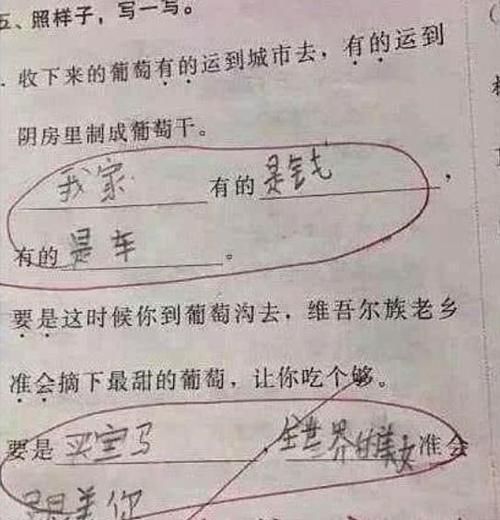 五、照样子，写一写。
. 收下来的葡萄有的运到城市去，有的运到
阴房里制成葡萄干。
我家 有的 是钱 ，
有的 是车 。
要是这时候你到葡萄沟去，维吾尔族老乡
准会摘下最甜的葡萄，让你吃个够。
要是 买宝马 ，全世界的美女 准会
你